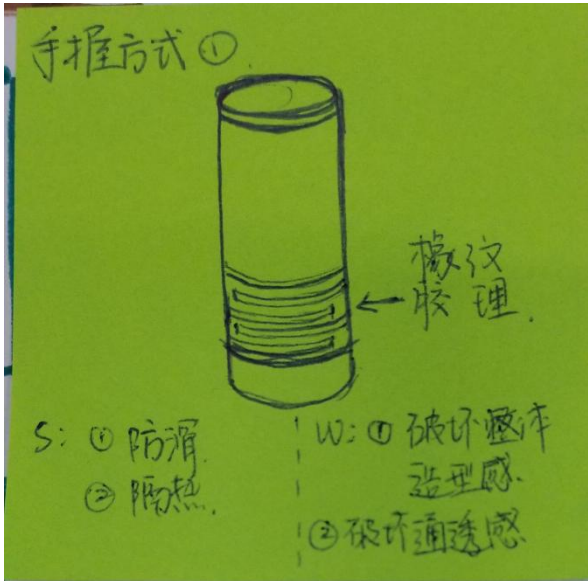 手握方式①
橡纹
胶理.
S: ①防滑.
②隔热.
W: ①破坏整体
造型感.
②破坏通透感